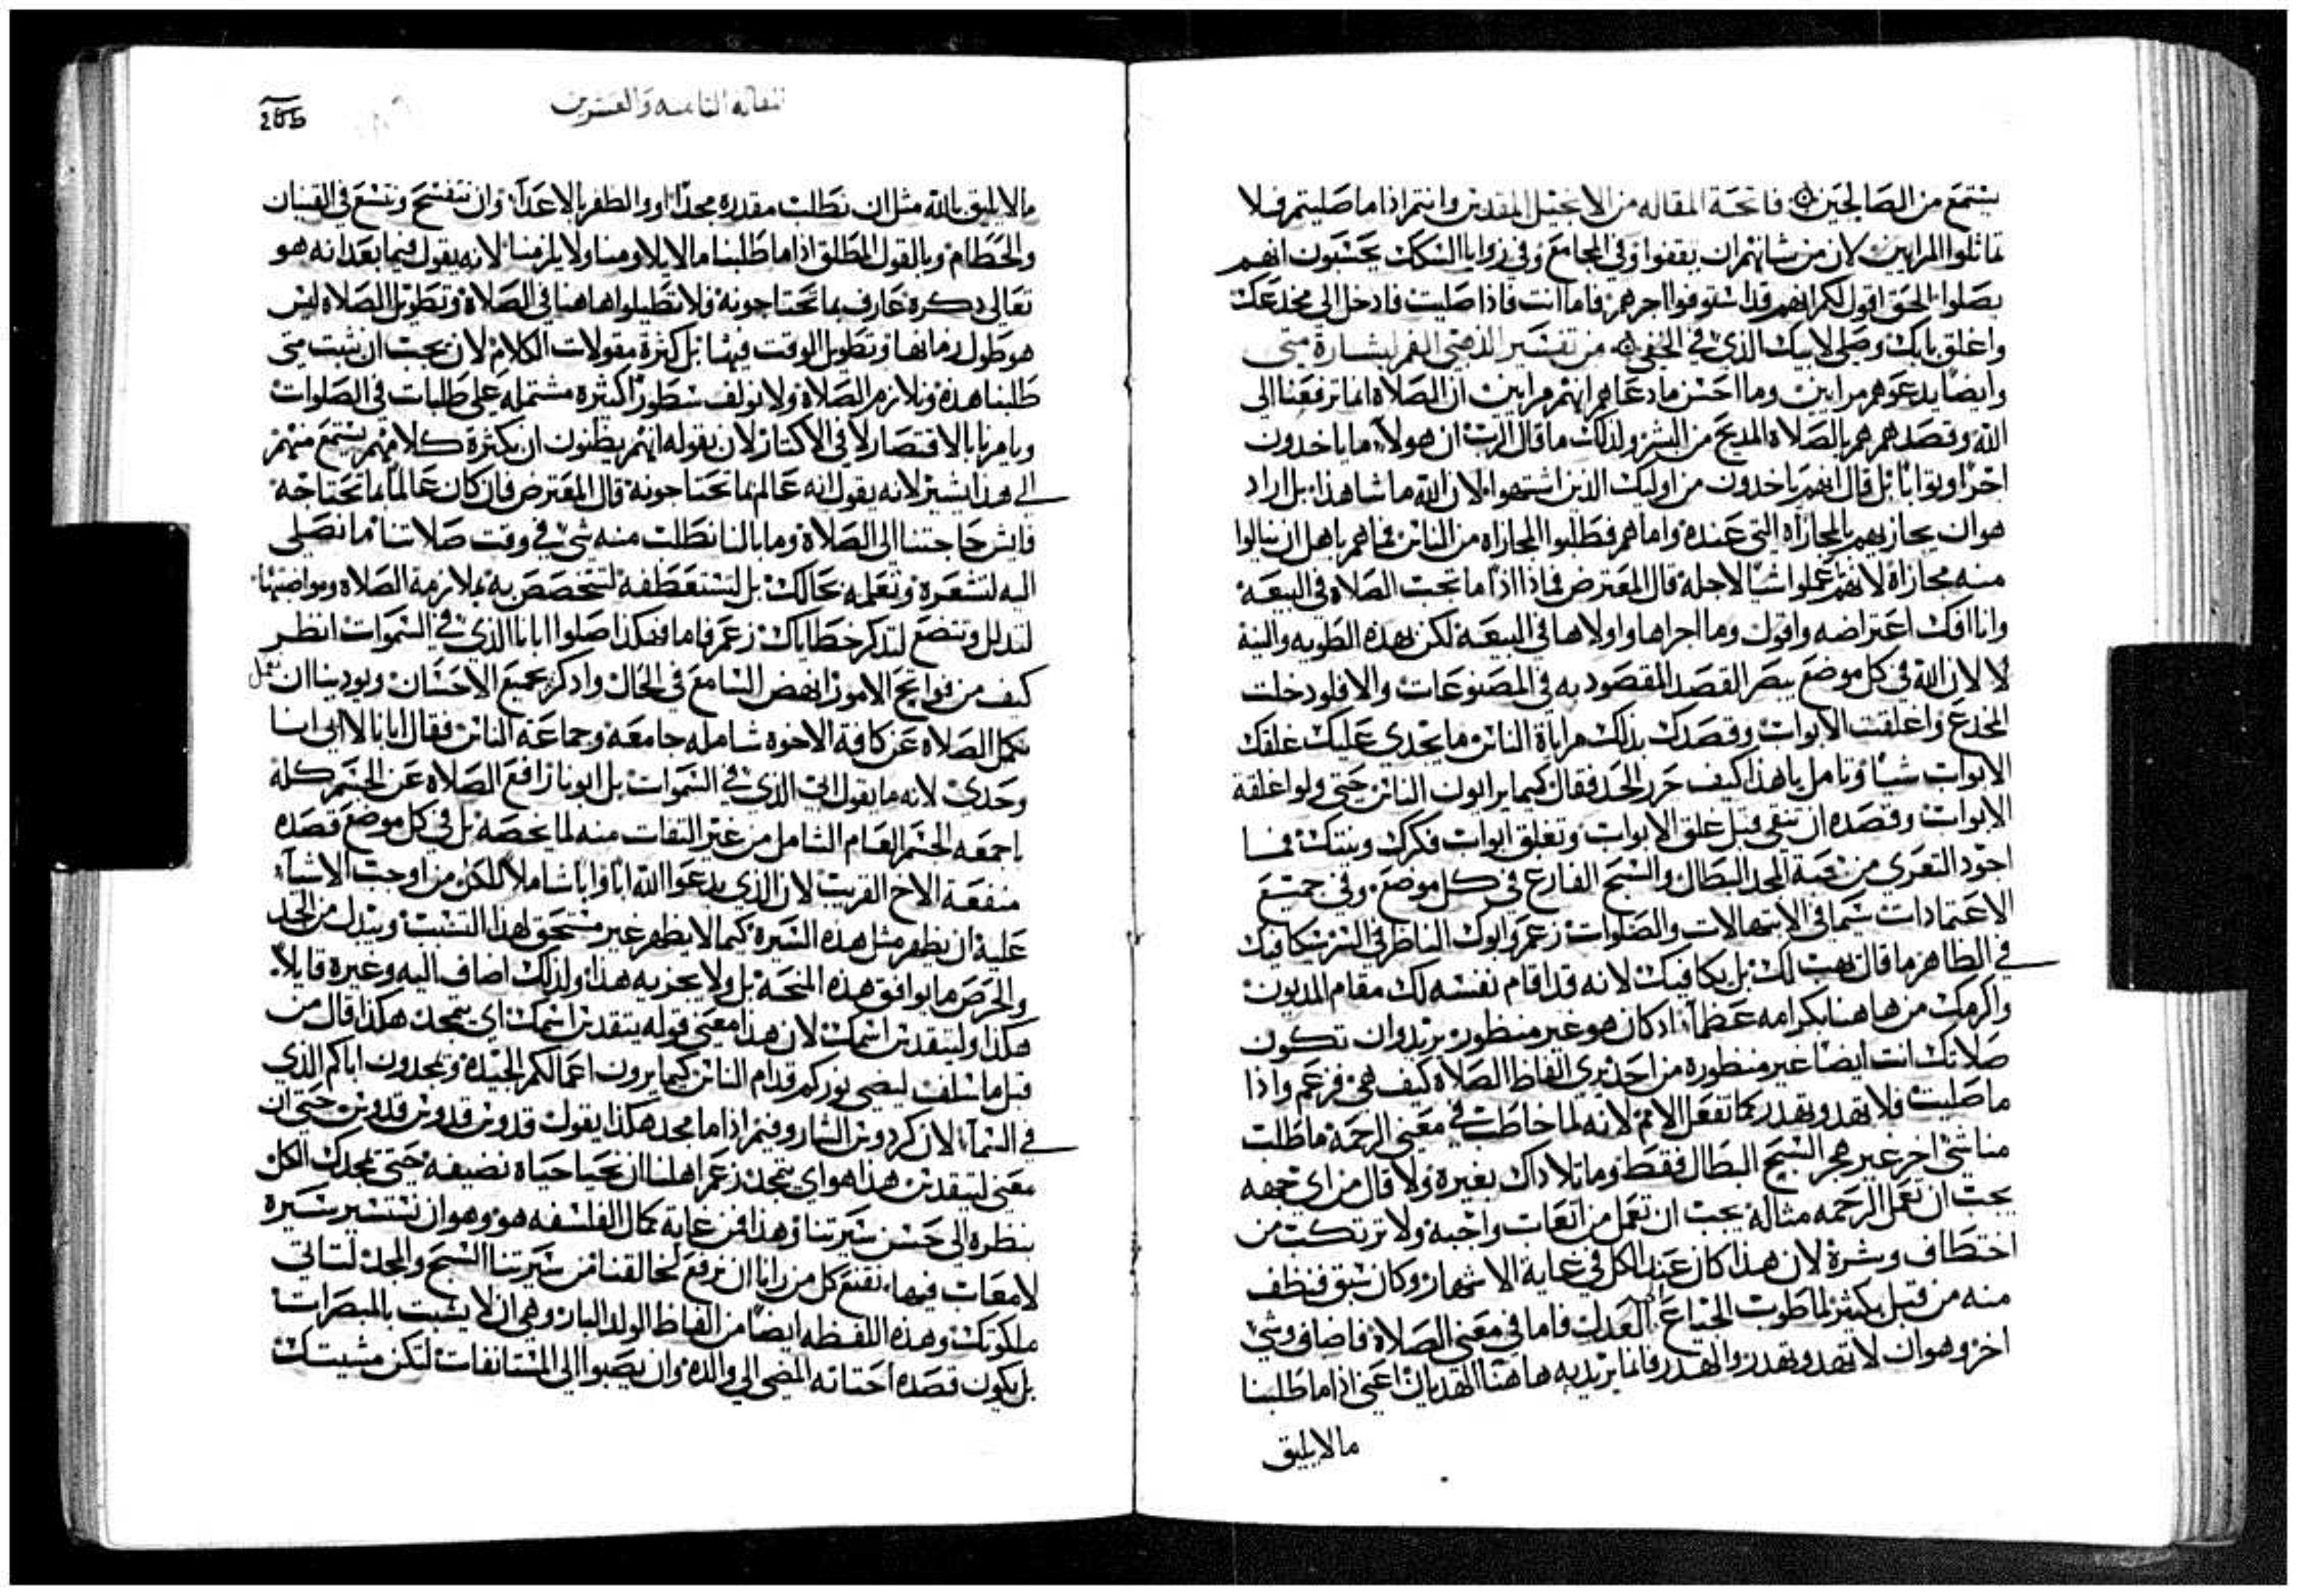 يستمع من الصالحين فاتحة المقاله من الانجيل المقدس وانتم اذا ما صليتم فلا
تماثلوا المرايين لان من شانهم ان يقفوا في المجامع وفي زوايا السكك يحسبون انهم
يصلوا الحق اقول لكم انهم قد استوفوا اجرهم فاما انت فاذا صليت فادخل الى مخدعك
واغلق بابك وصلي لابيك الذي في الخفي من تفسير الذهبي الفم لبشارة متى
وايضا يدعوهم مرايين وما احسن ما دعاهم انهم مرايين ان الصلاة انما ترفعنا الى
الله وقصدهم هم بالصلاة المديح من البشر ولذلك ما قال الرب ان هولاء ما ياخدون
اجرا وثوابا بل قال انهم ياخدون من اوليك الذين اشتهوا لان الله ما شا هذا بل اراد
هو ان يجازيهم بالمجازاه التي عنده واما هم فطلبوا المجازاه من الناس فما هم باهل ان ينالوا
منه مجازاة لانهم ما عملوا شيا لاجله قال المعترض فماذا اذا ما تحب الصلاه في البيعة
وانا افك اعتراضه واقول وما اجراها واولاها في البيعة لكن بهذه الطويه والنية
لا لان الله في كل موضع يبصر القصد المقصود به في المصنوعات والا فلو دخلت
المخدع واغلقت الابواب وقصدك بذلك مراياة الناس ما يجدي عليك غلقك
الابواب شيا وتامل يا هذا كيف حرر الحد فقال كيما يرايون الناس حتى ولو اغلقة
الابواب وقصده ان تنقي قبل غلق الابواب وتغلق ابواب فكرك ونيتك فما
اجود التعري من قبة المجد البطال والسبح الفارغ في كل موضع وفي جميع
الاعتمادات سيما في الابتهالات والصلوات زعم وابوك الناظر في السر يكافيك
في الظاهر ما قال يهب لك بل يكافيك لانه قد اقام نفسه لك مقام المديون
واكرمك من هاهنا بكرامه عظما اد كان هو غير منظور يريد وان تكون
صلاتك انت ايضا غير منظورة من احد ترى الفاظ الصلاة كيف هي فزعم واذا
ما صليت فلا تهدو بهدر كما تفعل الامم لانه لما خاطب في معنى الرحمة ما طلب
منا شي اخر غير هجر السبح البطال فقط وما تلا داك بغيره ولا قال من اي جهه
يجب ان نعمل الرحمه مثاله يجب ان تعمل من اتعاب واجبه ولا ترتكب من
اختطاف وشرة لان هذا كان عند الكل في غاية الاشهار وكان سبق فنظف
منه من قبل بكثير لما طوب الجياع العدل فاما في معنى الصلاة فاضاف وشي
اخر وهو ان لا تهدو بهدر والهدر فانما يريد به هاهنا الهديان اعني اذا ما طلبنا
ما لا يليق
المقاله الثامنه والعشرين
ما لا يليق بالله مثل ان نطلب مقدره مجدا او والظفر بالاعدا وان نتفسح ونتسع في القنيان
والحطام وبالقول المطلق اذا ما طلبنا ما لا يلاومنا ولا يلزمنا لانه يقول فيما بعد انه هو
تعالى دكره عارف بما تحتاجونه فلا تطيلوا هاهنا في الصلاة وتطويل الصلاه ليس
هو طول زمانها وتطويل الوقت فيها بل كثرة مقولات الكلام لان يجب ان نثبت متى
طلبنا هذه ونلازم الصلاة ولا نولف سطورا كثيره مشتمله على طلبات في الصلوات
ويامرنا بالاقتصار لا في الاكتار لان بقوله انهم يظنون ان بكثرة كلامهم يستمع منهم
الى هذا يشير لانه يقول انه عالم بما تحتاجونه قال المعترض فان كان عالما بما تحتاجه
فايش حاجتنا الى الصلاة وما بالنا نطلب منه شي في وقت صلاتنا ما نصلى
اليه لنشعرة ونعلمه بحالك بل لتستعطفه لتتخصص به بملازمة الصلاة ومواضبتها
لتدلل وتتضع لتدكر خطاياك زعم فاما فهكذا صلوا ابانا الذي في السموات انظر
كيف من فواتح الامور انهض السامع في الحال واذكره بجميع الاحسان ويودينا ان نجعل
نكمل الصلاه عن كافة الاخوه شامله جامعة وجماعة الناس فقال ابانا لا ابي انا
وحدي لانه ما يقول ابي الذي في السموات بل ابونا رافع الصلاه عن الجسم كله
باجمعه الجسم العام الشامل من غير التفات منه لما يخصه بل في كل موضع قصده
منفعة الاخ القريب لان الذي يدعوا الله ابا وابا شاملا للكل من اوجب الاشيا
عليه ان يظهر مثل هذه السيرة كيما لا يظهر غير مستحق لهذا التنسب ويبدل من الجد
والحرص ما يوافق هذه المنحه بل ولا يجزيه هذا ولذلك اضاف اليه وغيره قايلا
هكذا وليتقدس اسمك لان هذا معنى قوله يتقدس اسمك اي يتمجد هكذا قال من
قبل ما سلف ليضي نوركم قدام الناس كيما يرون اعمالكم الجيدة ويمجدون اباكم الذي
في السما لان كردوس الشاروفيم اذا ما مجد هكذا يقول قدوس قدوس قدوس حتى ان
معنى ليتقدس هذا هو اي يتمجد زعم اهلنا ان نحيا حياه نضيفه حتى يمجدك الكل
بنظره الى حسن سيرتنا وهذا من غاية كمال الفلسفه هو وهو ان نستسير بسيره
لا معاب فيها يقنع كل من رانا ان نرفع لخالقنا من سيرتنا السبح والمجد لتاتي
ملكوتك وهذه اللفظه ايضا من الفاظ الولد البار وهي ان لا يشبت بالمبصرات
بل يكون قصده احتاته المضي الى والده وان يصبوا الى المستانفات لتكن مشيتك